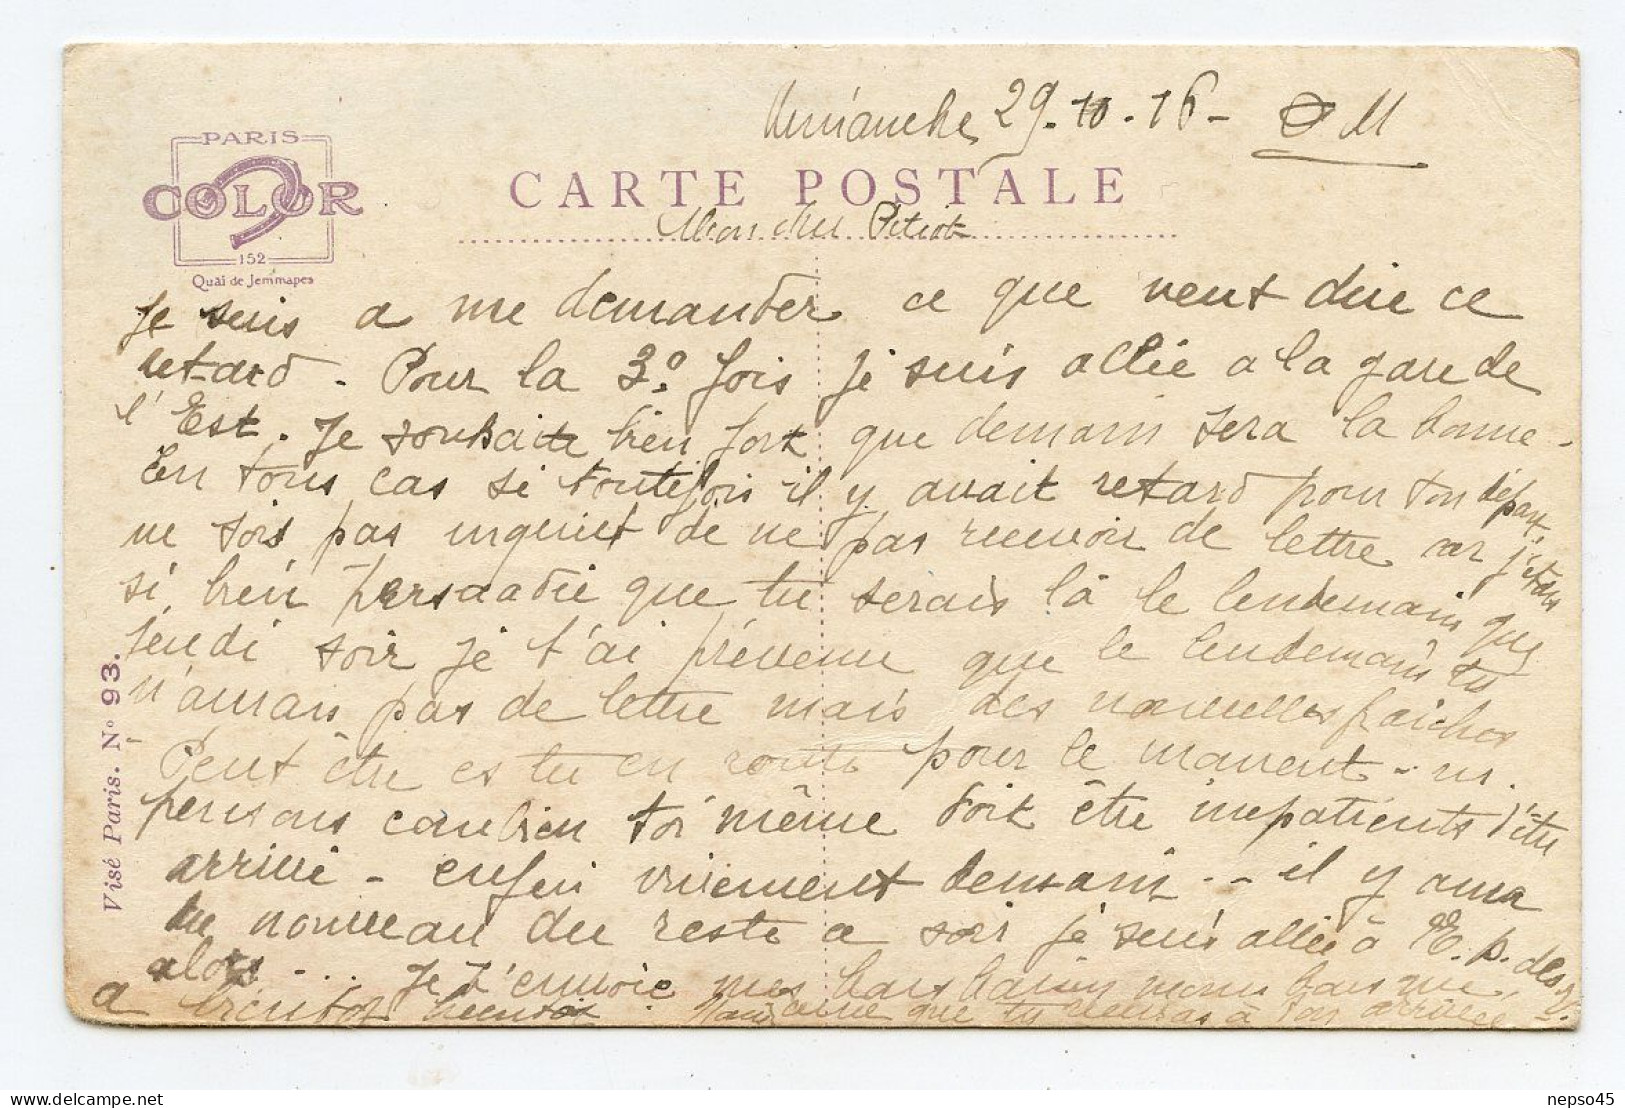 Dimanche 29.10.16 - M
PARIS
COLOR
152
Quai de Jemmapes
CARTE POSTALE
Mon cher Petiot
Je suis a me demander ce que veut dire ce
retard. Pour la 3e fois je suis allée a la gare de
l'Est. Je souhaite bien fort que demain sera la bonne -
En tous cas si toutefois il y avait retard pour ton départ
ne sois pas inquiet de ne pas recevoir de lettre car j'étais
si bien persuadée que tu serais là le lendemain que
jeudi soir je t'ai prévenu que le lendemain tu
n'aurais pas de lettre mais des nouvelles fraiches
Peut être es tu en route pour le moment -
pensons combien toi même doit être impatients d'être
arrivé - enfin vivement demain -- il y aura
du nouveau du reste ce soir je suis allée à E. p. des
alors .... Je t'envoie mes bons baisers
a bientot bientot que tu à ton arrivée
Visé Paris. No 93.
nepso45